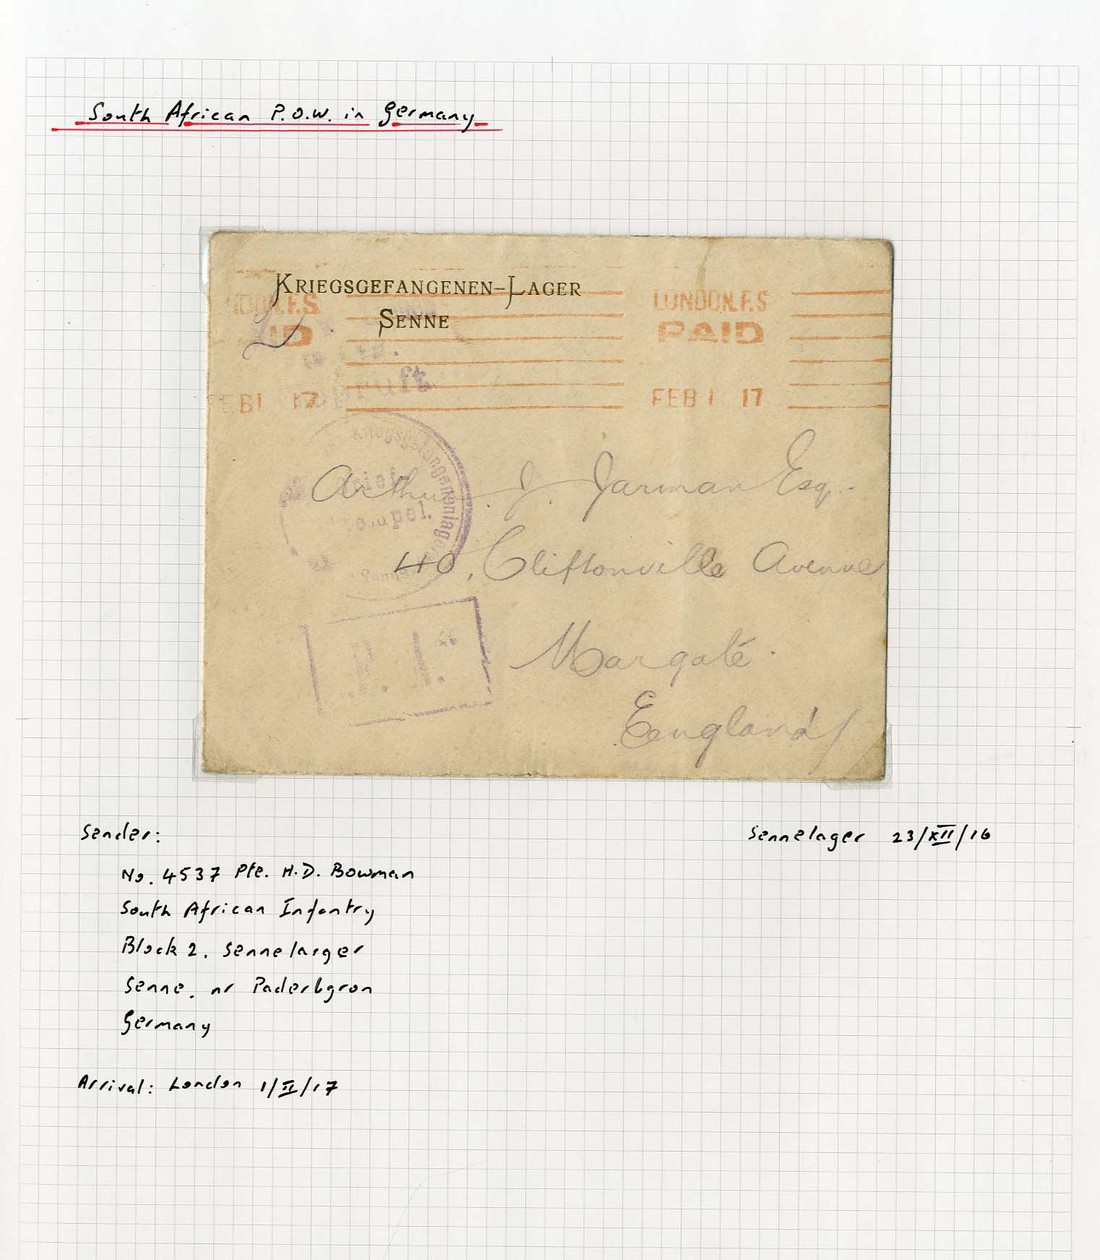 South African P.O.W. in Germany
KRIEGSGEFANGENEN-LAGER
SENNE
LONDON.F.S
PAID
FEB 1 17
LONDON.F.S
PAID
FEB 1 17
Arthur J. Jarman Esq.
40, Cliftonville Avenue
Margate.
England/
Sender:
No. 4537 Pte. H.D. Bowman
South African Infantry
Block 2, Sennelarger
Senne, nr Paderbgron
Germany
Sennelager 23/XII/16
Arrival: London 1/II/17